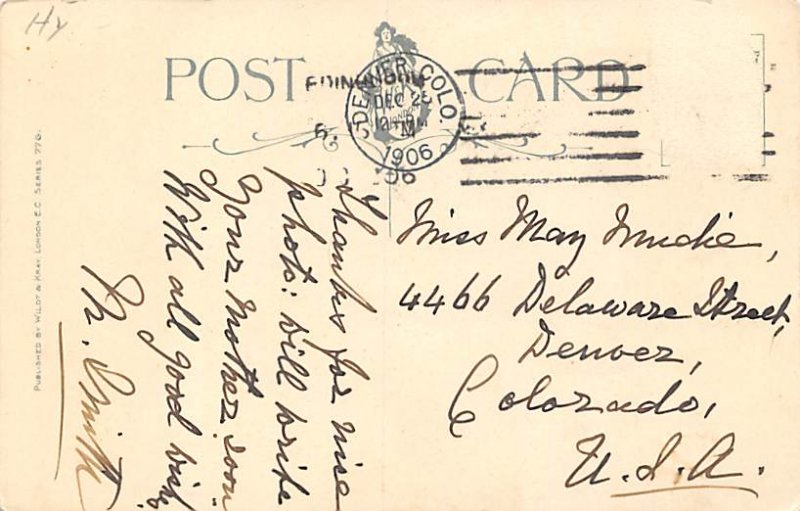 Hy
POST CARD
EDINBURGH
DENVER, COLO.
DEC 25
12 - M
1906
Miss May Mudie,
4466 Delaware Street,
Denver,
Colorado,
U.S.A.
Thanks for nice
photo: will write
your Mother soon
With all good wishes
M. Smith
PUBLISHED BY WILDT & KRAY. LONDON E.C. SERIES 776.